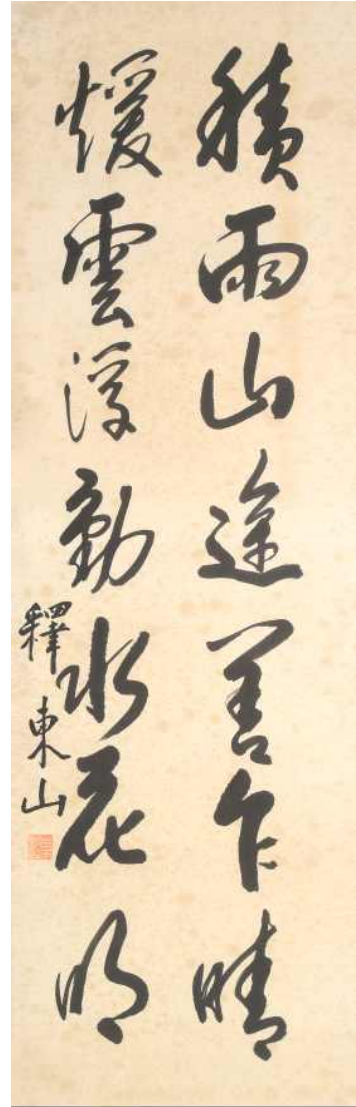 積雨山途喜乍晴
煖雲浮動水花明
釋東山